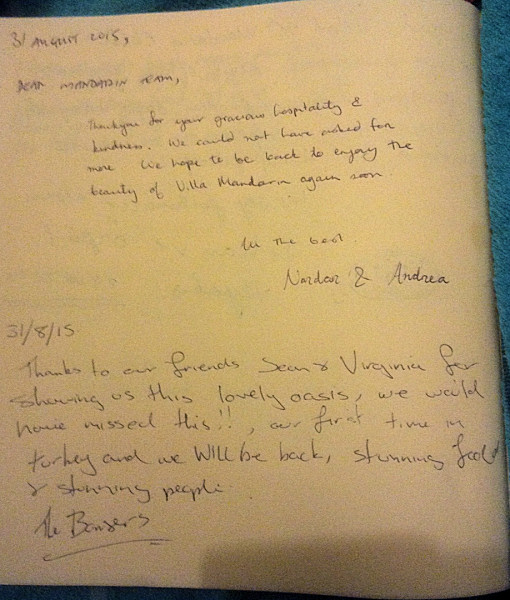 31 AUGUST 2015,
DEAR MANDARIN TEAM,
Thankyou for your gracious hospitality &
kindness. We could not have asked for
more. We hope to be back to enjoy the
beauty of Villa Mandarin again soon.
All the best.
& Andrea
31/8/15
Thanks to our friends Sean & Virginia for
showing us this lovely oasis, we would
have missed this!!, our first time in
turkey and we WIll be back, stunning food
& stunning people.
The